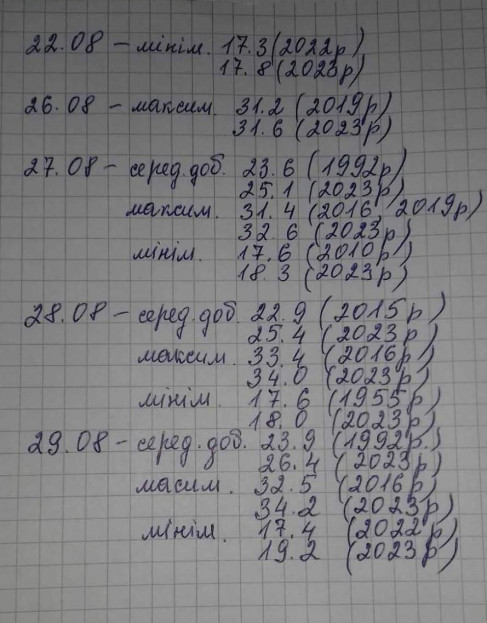 22.08 – мінім. 17.3 (2022р)
17.8 (2023р)
26.08 – максим. 31.2 (2019р)
31.6 (2023р)
27.08 – серед. доб. 23.6 (1992р)
25.1 (2023р)
максим. 31.4 (2016, 2019р)
32.6 (2023р)
мінім. 17.6 (2010р)
18.3 (2023р)
28.08 – серед. доб. 22.9 (2015р)
25.4 (2023р)
максим. 33.4 (2016р)
34.0 (2023р)
мінім. 17.6 (1955р)
18.0 (2023р)
29.08 – серед. доб. 23.9 (1992р.)
26.4 (2023р)
масим. 32.5 (2016р)
34.2 (2023р)
мінім. 17.4 (2022р)
19.2 (2023р)